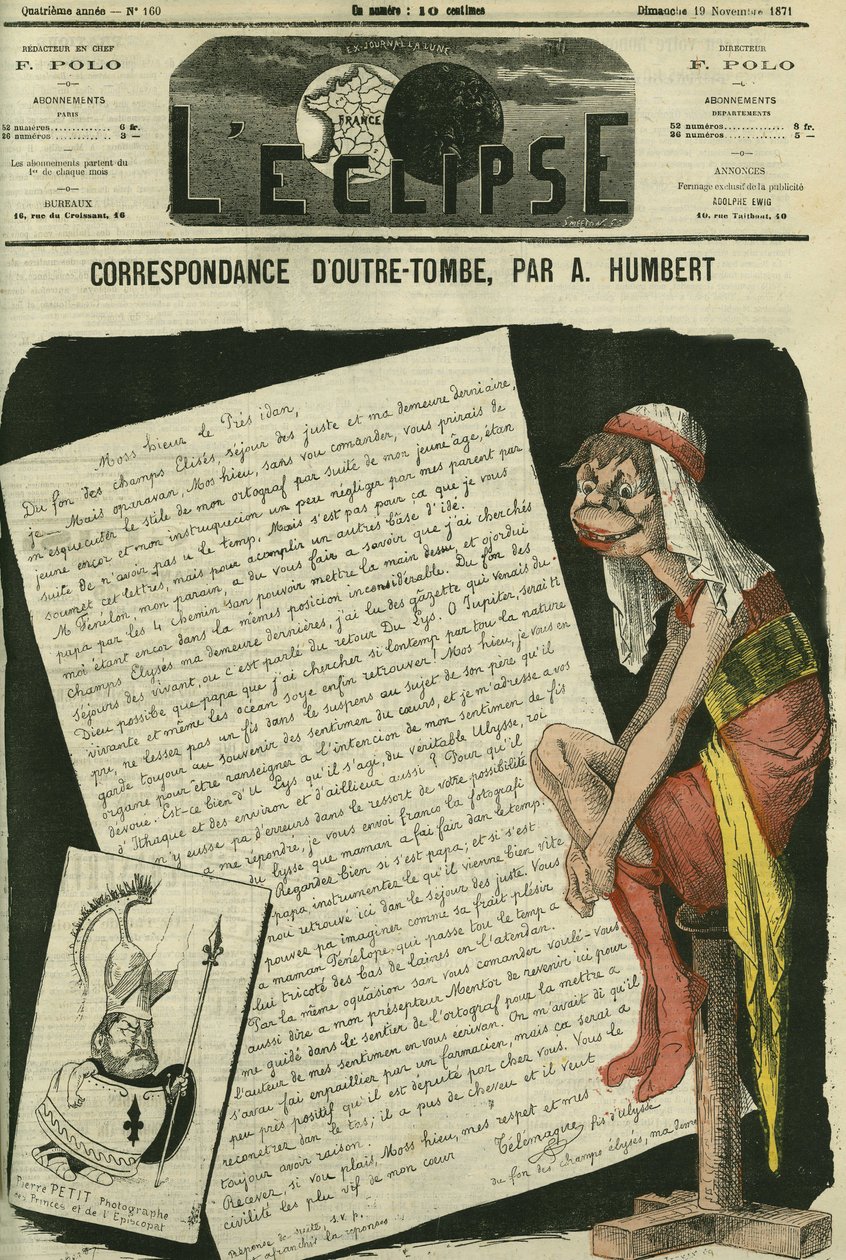 Quatrième année — N° 160
Un numéro : 10 centimes
Dimanche 19 Novembre 1871
RÉDACTEUR EN CHEF
F. POLO
ABONNEMENTS
PARIS
52 numéros............ 6 fr.
26 numéros............ 3 —
Les abonnements partent du
1er de chaque mois
BUREAUX
16, rue du Croissant, 16
EX-JOURNAL LA LUNE
FRANCE
L'ECLIPSE
SMEETON
DIRECTEUR
F. POLO
ABONNEMENTS
DÉPARTEMENTS
52 numéros............ 8 fr.
26 numéros............ 5 —
ANNONCES
Fermage exclusif de la publicité
ADOLPHE EWIG
10, rue Taitbout, 10
CORRESPONDANCE D'OUTRE-TOMBE, PAR A. HUMBERT
Moss hieur le Prés idan,
Du fon des champs Elisés, séjour des juste et ma demeure derniaire,
je — Mais oparavan, Mos hieu, sans vou comander, vous prirais de
m'esquecuter le stile de mon ortograf par suite de mon jeune age, étan
jeune encor et mon instruquecion un peu négliger par mes parent par
suite de n'avoir pas u le temp. Mais s'est pas pour ça que je vous
soumet cet lettres, mais pour acomplir un autres bâse d'idé.
M Fénélon, mon parain, a du vous fair a savoir que j'ai cherchés
papa par les 4 chemin san pouvoir mettre la main dessu, et ojordui
moi étant encor dans la mêmes posicion inconsidérable. Du fon des
champs Elyses ma demeure dernières, j'ai lu des gâzette qui venais du
séjours des vivant, ou c'est parlé du retour Du Lys. O Jupiter, serait i
Dieu possibe que papa que j'ai chercher si lontemp par tou la nature
vivante et même les océan soye enfin retrouver! Mos hieu, je vous en
pri, ne lessez pas un fis dans le suspens au sujet de son père qu'il
garde toujour au souvenir des sentiment du cœurs, et je m'adresse a vos
organe pour être ranseigner a l'intencion de mon sentiment de fis
devoue. Est-ce bien d'U Lys qu'il s'agi, du véritable Ulysse, roi
d'Ithaque et des environ et d'aillieur aussi? Pour qu'il
n'y eusse pa d'erreurs dans le ressort de votre possibilité
a me répondre, je vous envoi franco la fotografi
du lysse que maman a fai fair dan le temp.
Regardez bien si s'est papa; et si s'est
papa, instrumentez le qu'il vienne bien vite
nou retrouvé ici dan le séjour des juste. Vous
pouvez pa imaginer comme sa frait plésir
a maman Pénélope, qui passe tou le temp a
lui tricoté des bas de laines en l'atendan.
Par la même oquâsion san vous comander voulé-vous
aussi dire a mon présepteur Mentor de revenir ici pour
me guidé dans le sentier de l'ortograf pour la mettre a
l'auteur de mes sentimen en vous ecrivan. On m'avait di qu'il
s'avai fai empaillier par un farmacien, mais ça serai a
peu près positif qu'il est député par chez vous. Vous le
reconetrez dan le tas; il a pus de cheveu et il veut
toujour avoir raison.
Recevez, si vou plais, Moss hieu, mes respet et mes
civilité les plu vif de mon cœur
Télémaque fis d'Ulysse
du fon des champs élysés, ma deme
Réponse de suite, s.v.p.
et afranchi la réponses
Pierre PETIT Photographe
des Princes et de l'Episcopat